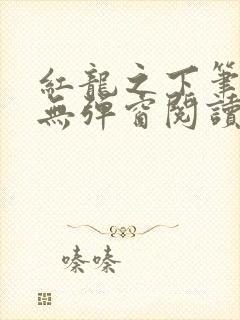 紅龍之下筆
無彈窗閱讀
嗪嗪